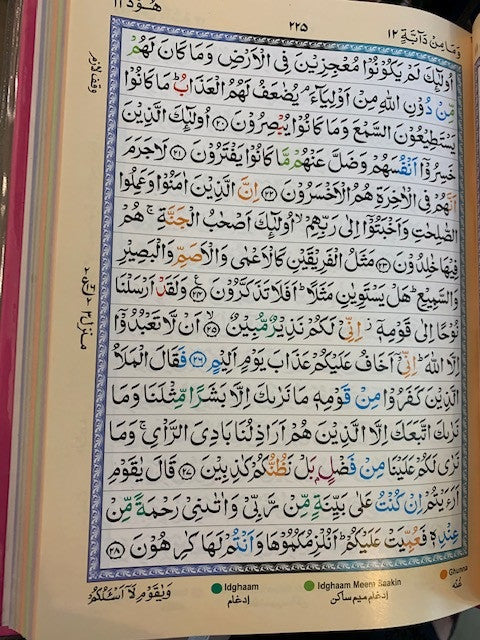 هُوْد ۱۱
۲۲۵
وَمَا مِنْ دَآبَّةٍ ۱۲
اُولٰٓئِكَ لَمْ يَكُوْنُوْا مُعْجِزِيْنَ فِى الْاَرْضِ وَمَا كَانَ لَهُمْ
مِّنْ دُوْنِ اللّٰهِ مِنْ اَوْلِيَآءَ ۘ يُضٰعَفُ لَهُمُ الْعَذَابُ ؕ مَا كَانُوْا
يَسْتَطِيْعُوْنَ السَّمْعَ وَمَا كَانُوْا يُبْصِرُوْنَ ﴿۲۰﴾ اُولٰٓئِكَ الَّذِيْنَ
خَسِرُوْۤا اَنْفُسَهُمْ وَضَلَّ عَنْهُمْ مَّا كَانُوْا يَفْتَرُوْنَ ﴿۲۱﴾ لَا جَرَمَ
اَنَّهُمْ فِى الْاٰخِرَةِ هُمُ الْاَخْسَرُوْنَ ﴿۲۲﴾ اِنَّ الَّذِيْنَ اٰمَنُوْا وَعَمِلُوا
الصّٰلِحٰتِ وَاَخْبَتُوْۤا اِلٰى رَبِّهِمْ ۙ اُولٰٓئِكَ اَصْحٰبُ الْجَنَّةِ ۚ هُمْ
فِيْهَا خٰلِدُوْنَ ﴿۲۳﴾ مَثَلُ الْفَرِيْقَيْنِ كَالْاَعْمٰى وَالْاَصَمِّ وَالْبَصِيْرِ
وَالسَّمِيْعِ ؕ هَلْ يَسْتَوِيٰنِ مَثَلًا ؕ اَفَلَا تَذَكَّرُوْنَ ﴿۲۴﴾ وَلَقَدْ اَرْسَلْنَا
نُوْحًا اِلٰى قَوْمِهٖۤ ۫ اِنِّىْ لَكُمْ نَذِيْرٌ مُّبِيْنٌ ﴿۲۵﴾ اَنْ لَّا تَعْبُدُوْۤا
اِلَّا اللّٰهَ ؕ اِنِّىْۤ اَخَافُ عَلَيْكُمْ عَذَابَ يَوْمٍ اَلِيْمٍ ﴿۲۶﴾ فَقَالَ الْمَلَاُ
الَّذِيْنَ كَفَرُوْا مِنْ قَوْمِهٖ مَا نَرٰىكَ اِلَّا بَشَرًا مِّثْلَنَا وَمَا
نَرٰىكَ اتَّبَعَكَ اِلَّا الَّذِيْنَ هُمْ اَرَاذِلُنَا بَادِىَ الرَّاْىِ ۚ وَمَا
نَرٰى لَكُمْ عَلَيْنَا مِنْ فَضْلٍۭ بَلْ نَظُنُّكُمْ كٰذِبِيْنَ ﴿۲۷﴾ قَالَ يٰقَوْمِ
اَرَءَيْتُمْ اِنْ كُنْتُ عَلٰى بَيِّنَةٍ مِّنْ رَّبِّىْ وَاٰتٰىنِىْ رَحْمَةً مِّنْ
عِنْدِهٖ فَعُمِّيَتْ عَلَيْكُمْ ؕ اَنُلْزِمُكُمُوْهَا وَاَنْتُمْ لَهَا كٰرِهُوْنَ ﴿۲۸﴾
وقف لازم
منزل ۳
Idghaam
ادغام
Idghaam Meem Saakin
ادغام میم ساکن
Ghunna
غُنّه
وَيٰقَوْمِ لَاۤ اَسْـَٔلُكُمْ